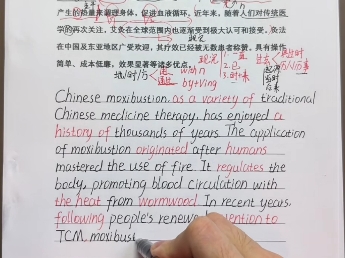 产生的热量来调理身体，促进血液循环。近年来，随着人们对传统医
学的再次关注，艾灸在全球范围内也逐渐受到极大认可和接受。灸法
在中国及东亚地区广受欢迎，其疗效已被无数患者称赞，具有操作
简单、成本低廉、效果显著等诸多优点。
with n
by+Ving
Chinese moxibustion, as a variety of traditional
Chinese medicine therapy, has enjoyed a
history of thousands of years. The application
of moxibustion originated after humans
mastered the use of fire. It regulates the
body, promoting blood circulation with
the heat from wormwood. In recent years,
following people's renewed attention to
TCM, moxibust